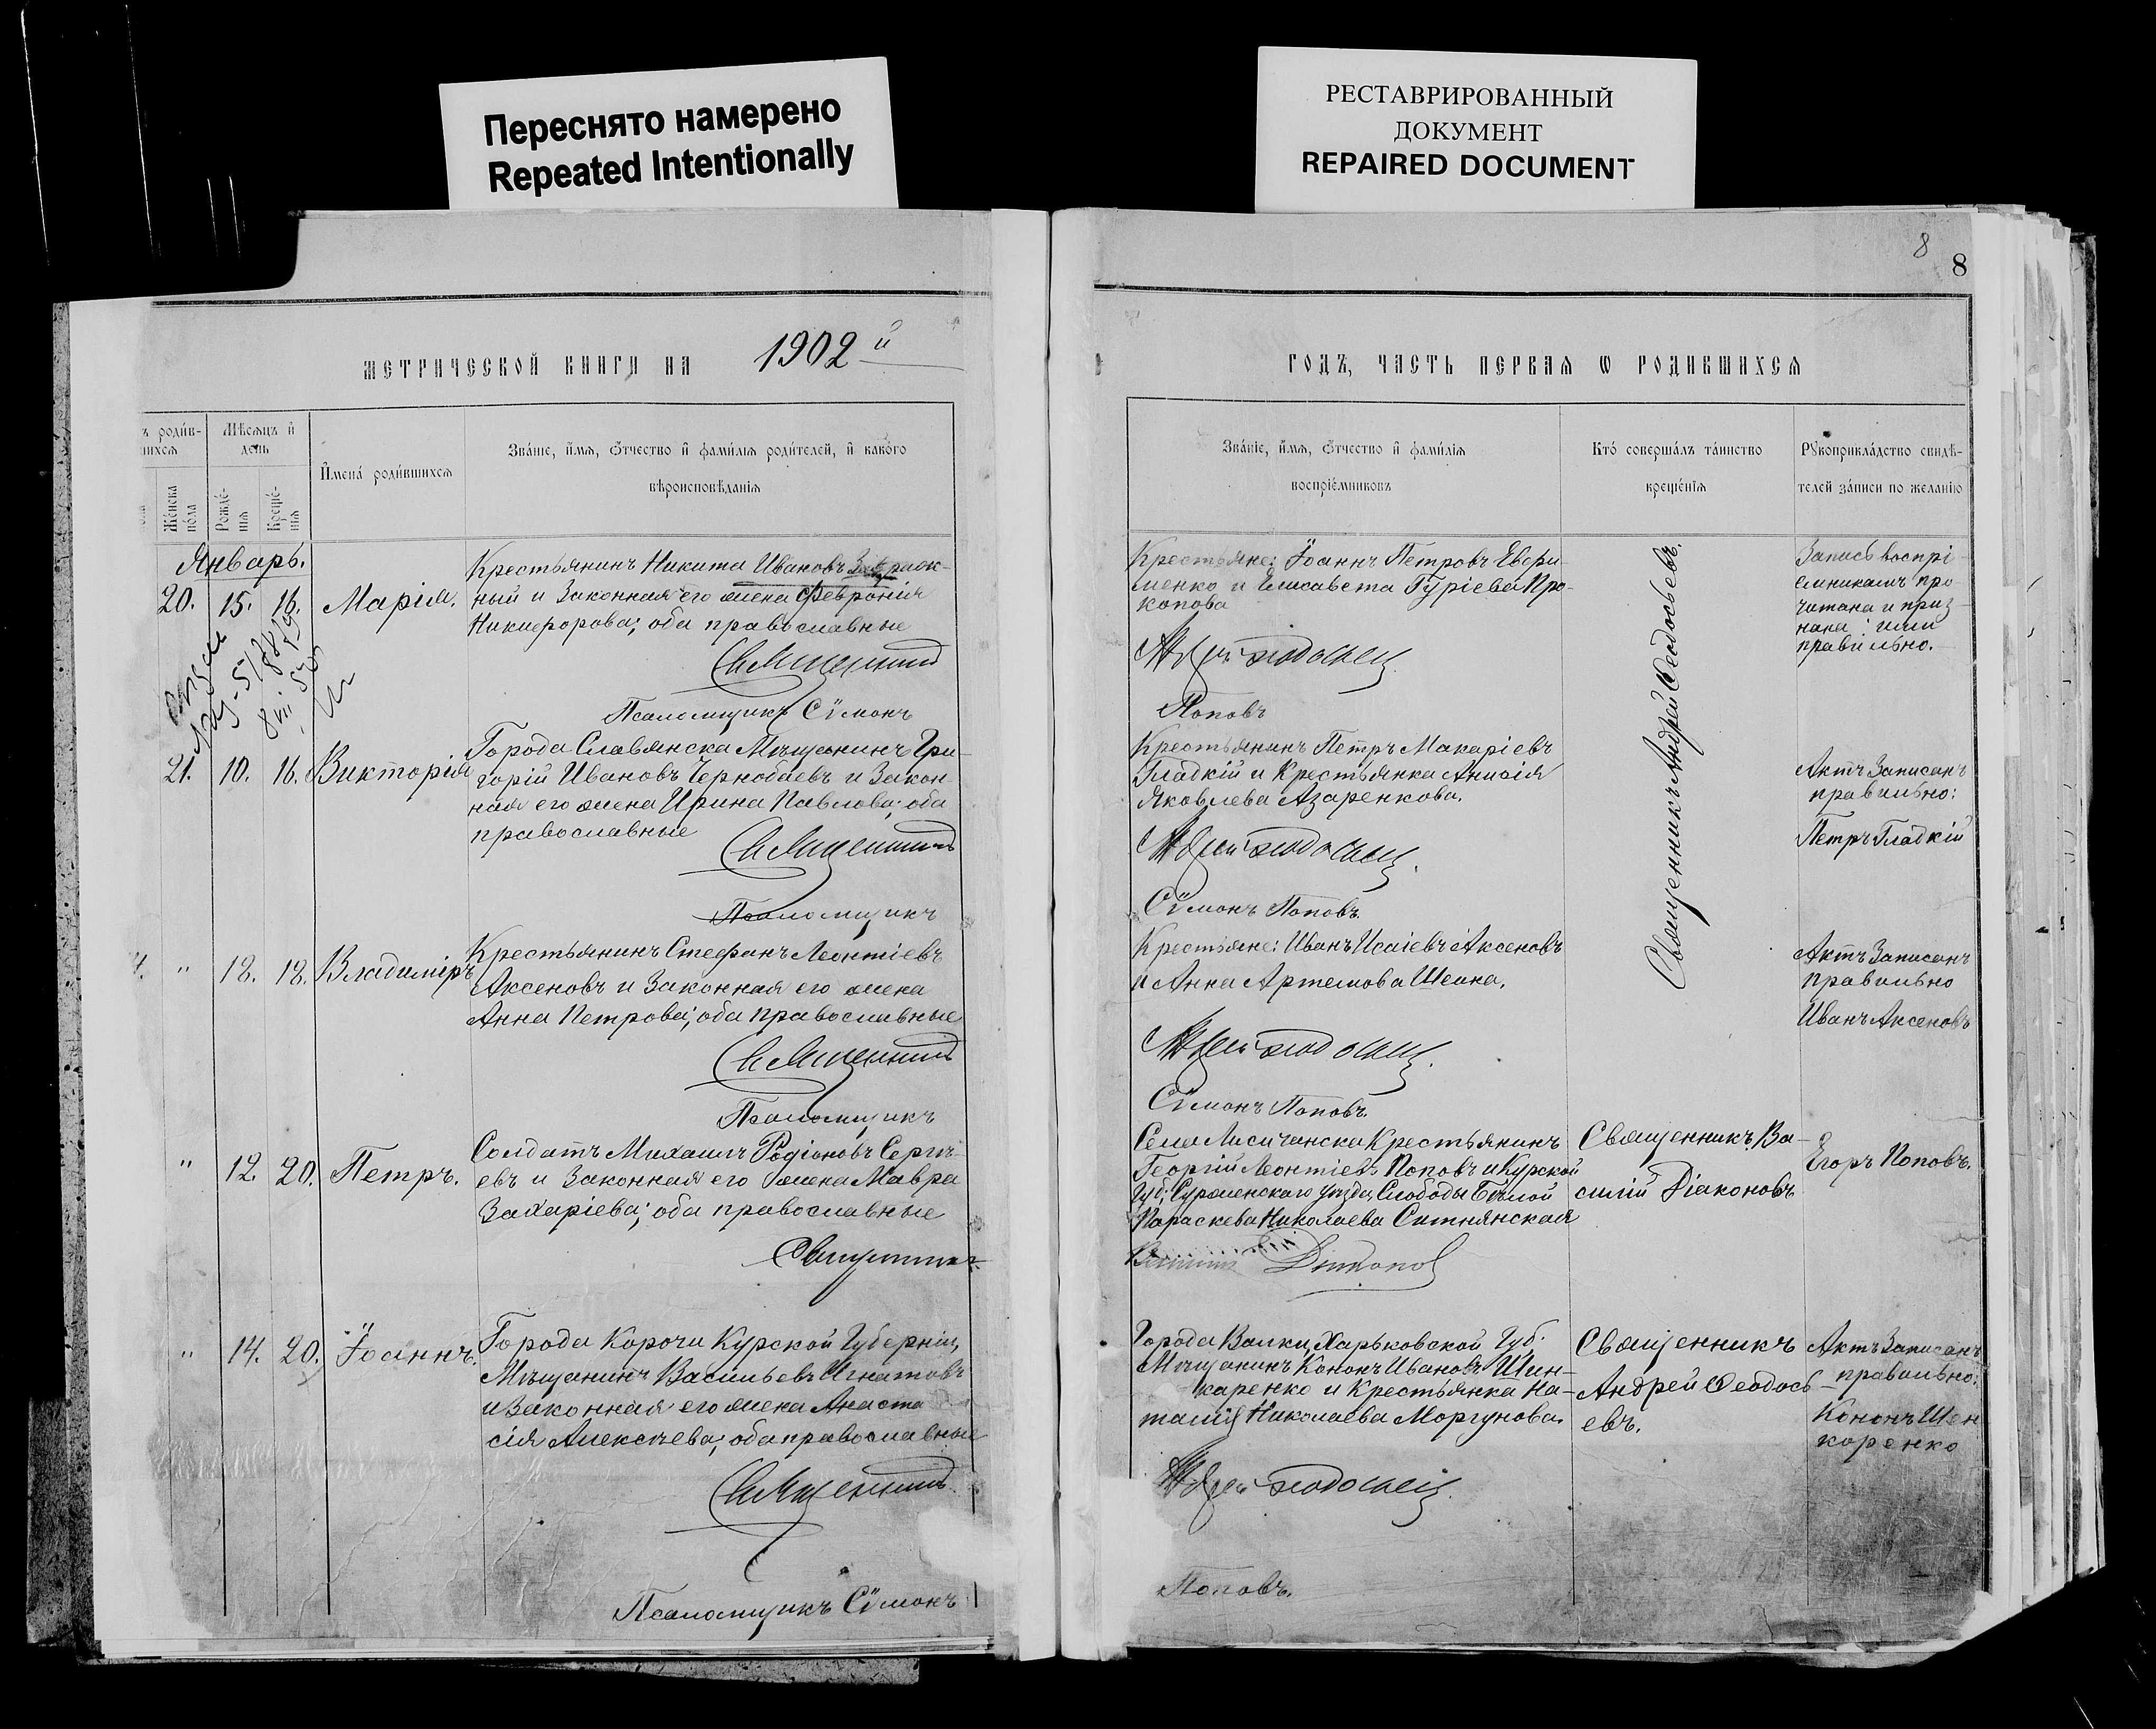 Переснято намерено
Repeated Intentionally
РЕСТАВРИРОВАННЫЙ
ДОКУМЕНТ
REPAIRED DOCUMENT
8
8
МЕТРИЧЕСКОЙ КНИГИ НА 1902й
ГОДЪ, ЧАСТЬ ПЕРВАЯ Ѡ РОДИВШИХСЯ
ъ роди́в-
шихся
Мѣсяцъ и҆
день
И҆мена̀ роди́вшихся
Зва́нїе, и҆́мя, ѻ҆́тчество и҆ фами́лїя роди́телей, и҆ како́го
вѣроисповѣ́данїя
Же́нска
по́ла
Рожде́-
нїя
Креще́-
нїя
Зва́нїе, и҆́мя, ѻ҆́тчество и҆ фами́лїя
воспрїе́мниковъ
Кто́ соверша́лъ та́инство
креще́нїя
Рꙋкоприкла́дство свидѣ́-
телей за́писи по жела́нїю
Январь.
20. 15. 16. Марія.
Крестьянинъ Никита Ивановъ
ный и Законная его жена Февронія
Никифорова; оба православные
Псаломщикъ Сѷмонъ
Крестьяне: Іоаннъ Петровъ Ефри-
менко и Елисавета Гуріева Про-
копова
Поповъ
Запись воспрі-
емникамъ про-
читана и приз-
нана ими
правильно.
Священникъ Андрей Ѳеодосьевъ.
21. 10. 16. Викторія
Города Славянска Мѣщанинъ Гри-
горій Ивановъ Чернобаевъ и Закон-
ная его жена Ирина Павлова; оба
православные
Псаломщикъ
Крестьянинъ Петръ Макаріевъ
Гладкій и Крестьянка Анисія
Яковлева Азаренкова.
Сѷмонъ Поповъ.
Актъ Записанъ
правильно:
Петръ Гладкій
" 18. 18. Владиміръ
Крестьянинъ Стефанъ Леонтіевъ
Аксеновъ и Законная его жена
Анна Петрова; оба православные
Псаломщикъ
Крестьяне: Иванъ Исаіевъ Аксеновъ
и Анна Артемова Шеина.
Сѷмонъ Поповъ.
Актъ Записанъ
правильно
Иванъ Аксеновъ
" 12. 20. Петръ.
Солдатъ Михаилъ Родіоновъ Сергѣ-
евъ и Законная его жена Мавра
Захаріева; оба православные
Священникъ
Села Лисичанска Крестьянинъ
Георгій Леонтіевъ Поповъ и Курской
Губ; Судженскаго уѣзда, Слободы Бѣлой
Параскева Николаева Ситнянская
Священникъ Ва-
силій Діаконовъ
Егоръ Поповъ.
" 14. 20. Іоаннъ.
Города Корочи Курской Губерніи,
Мѣщанинъ Васильевъ Игнатовъ
и Законная его жена Анаста
сія Алексѣева; оба православные
Псаломщикъ Сѷмонъ
Города Валки, Харьковской Губ.
Мѣщанинъ Кононъ Ивановъ Шин-
каренко и Крестьянка На-
талія Николаева Моргунова.
Поповъ.
Священникъ
Андрей Ѳеодось-
евъ.
Актъ Записанъ
правильно:
Кононъ Шин
каренко